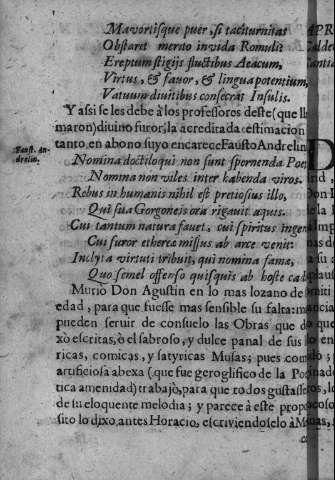 Mavortisque puer, si taciturnitas
Obstaret merito invida Romuli?
Ereptum stigijs fluctibus Aeacum,
Virtus, & favor, & lingua potentium,
Vatuum divitibus consecrat Insulis.
Y assi se les debe à los professores deste (que ll
maron) divino furor, la acreditada estimacion
tanto en abono suyo encarece Fausto Andrelin
Faust. An-
drelin.
Nomina doctiloqui non sunt spernenda Poe
Nomina non viles inter habenda viros.
Rebus in humanis nihil est pretiosius illo,
Qui sua Gorgoneis ora rigavit aquis.
Cui tantum natura favet, cui spiritus ingen
Cui furor etherea missus ab arce venit
Inclyta virtuti tribuit, qui nomina famæ,
Quo semel offenso quisquis ab hoste cad
Murio Don Agustin en lo mas lozano de s
edad, para que fuesse mas sensible su falta: ma
pueden servir de consuelo las Obras que d
xò escritas, ò el sabroso, y dulce panal de sus l
ricas, comicas, y satyricas Musas; pues com
artificiosa abexa (que fue geroglifico de la Po
tica amenidad) trabajò, para que todos gustasse
de su eloquente melodia; y parece à este prop
sito lo dixo antes Horacio, escriviendoselo à M